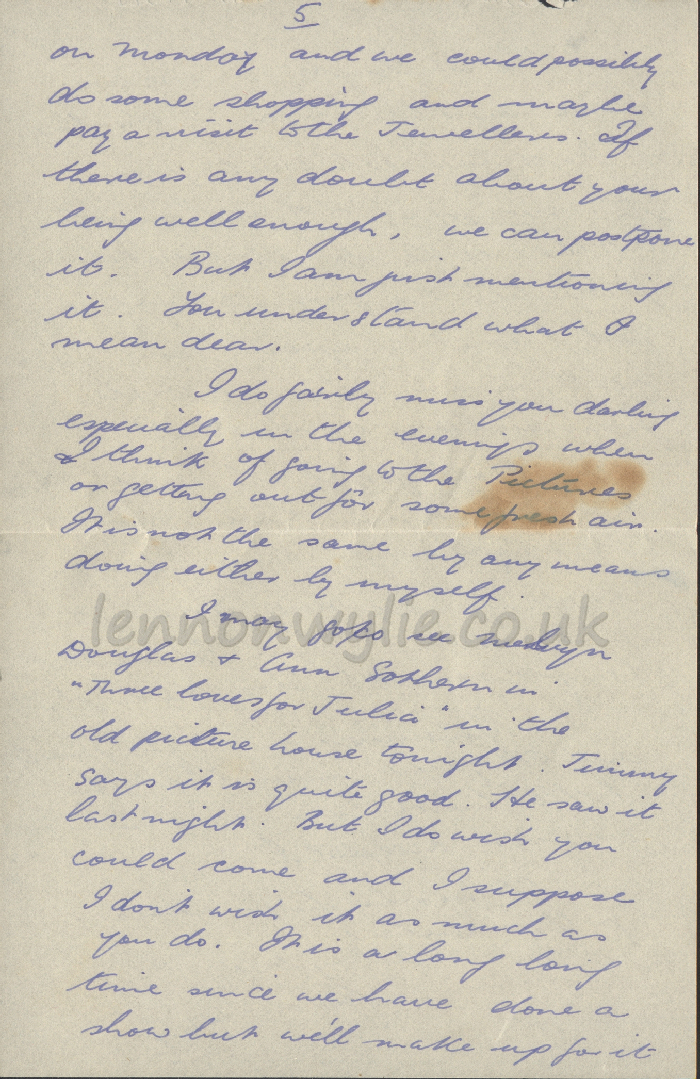 5
on Monday and we could possibly
do some shopping and maybe
pay a visit to the Jewellers. If
there is any doubt about your
being well enough, we can postpone
it. But I am just mentioning
it. You understand what I
mean dear.
I do fairly miss you darling
especially in the evenings when
I think of going to the Pictures
or getting out for some fresh air.
It is not the same by any means
doing either by myself.
lennonwylie.co.uk
I may go to see Melvyn
Douglas + Ann Sothern in
"Three loves for Julia" in the
old picture house tonight. Jimmy
says it is quite good. He saw it
last night. But I do wish you
could come and I suppose
I don't wish it as much as
you do. It is a long long
time since we have done a
show but we'll make up for it